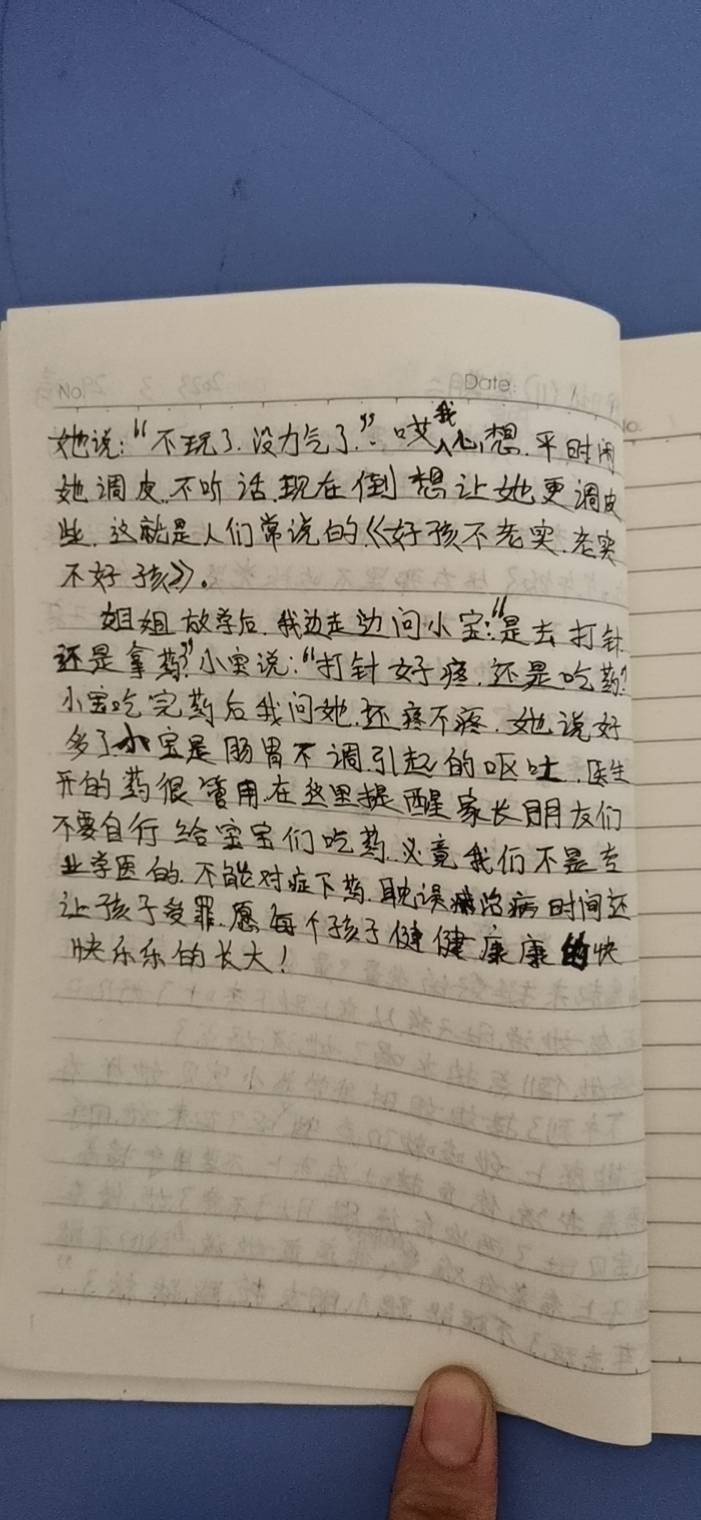 No.
Date
她说:“不玩了.没力气了.”. 哎我心想.平时闹
她调皮.不听话.现在倒想让她更调皮
些.这就是人们常说的《好孩不老实.老实
不好孩》。
姐姐放学后.我边走边问小宝:“是去打针
还是拿药?”小宝说:“打针好疼.还是吃药?
小宝吃完药后我问她.还疼不疼.她说好
多了.小宝是肠胃不调引起的呕吐.医生
开的药很管用.在这里提醒家长朋友们
不要自行给宝宝们吃药.必竟我们不是专
业学医的.不能对症下药.耽误治病时间还
让孩子受罪.愿每个孩子健健康康的快
快乐乐的长大!